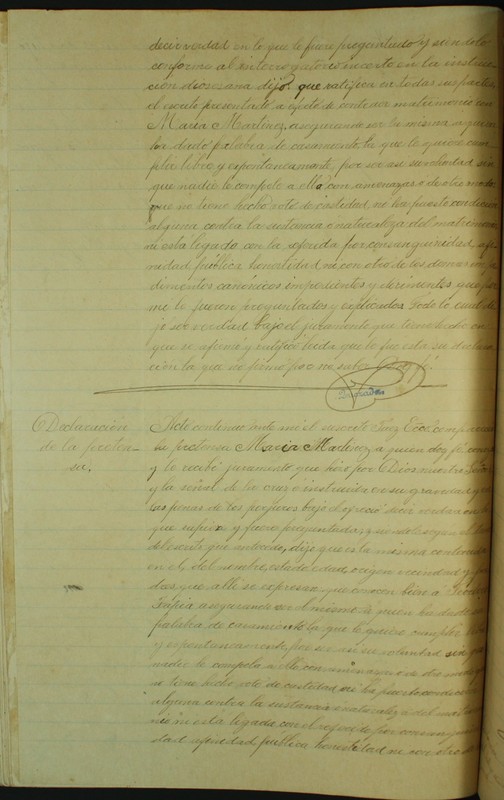 decir verdad en lo que le fuere preguntado y siendolo
conforme al interrogatorio inserto en la instruc-
cion diocesana dijo: que ratifica en todas sus partes
el escrito presentado a efecto de contraer matrimonio con
Maria Martinez, asegurando ser la misma a quien
ha dado palabra de casamiento, la que le quiere cum-
plir libre y espontaneamente, por ser asi su voluntad sin
que nadie le compela a ello con amenazas o de otro modo
que no tiene hecho voto de castidad, no ha puesto condicion
alguna contra la sustancia o naturaleza del matrimonio
ni está legado con la referida por consanguinidad, afi-
nidad, pública honestidad ni con otro de los demas im-
dimentos canónicos impedientes y dirimentes que por
mi le fueron preguntados y explicados. Todo lo cual di-
jo ser verdad bajo el juramento que tiene hecho en
que se afirmó y ratificó leida que le fue esta su declara-
cion la que no firmó por no saber. Doy fé.
Declaración
de la preten-
sa.
Acto continuo ante mi el suscrito Juez Ecco. compareció
la pretensa Maria Martinez a quien doy fé conozco
y le recibí juramento que hizo por Dios nuestro Señor
y la señal de la cruz e instruida en su gravedad y en
las penas de los perjuros bajo el ofreció decir verdad en lo
que supiere y fuere preguntada, y siendolo segun el
del escrito que antecede, dijo que es la misma contenida
en el, del nombre, estado, edad, origen vecindad y
que alli se expresan que conoce bien a
Tapia asegurando ser el mismo a quien ha dado
palabra de casamiento la que le quiere cumplir libre
y espontaneamente, por ser asi su voluntad sin que
nadie le compela a ello con amenazas o de otro modo que
no tiene hecho voto de castidad ni ha puesto condicion
alguna contra la sustancia o naturaleza del matrimo-
nio ni está legada con el referido por consanguini-
dad, afinidad, pública honestidad ni con otro de